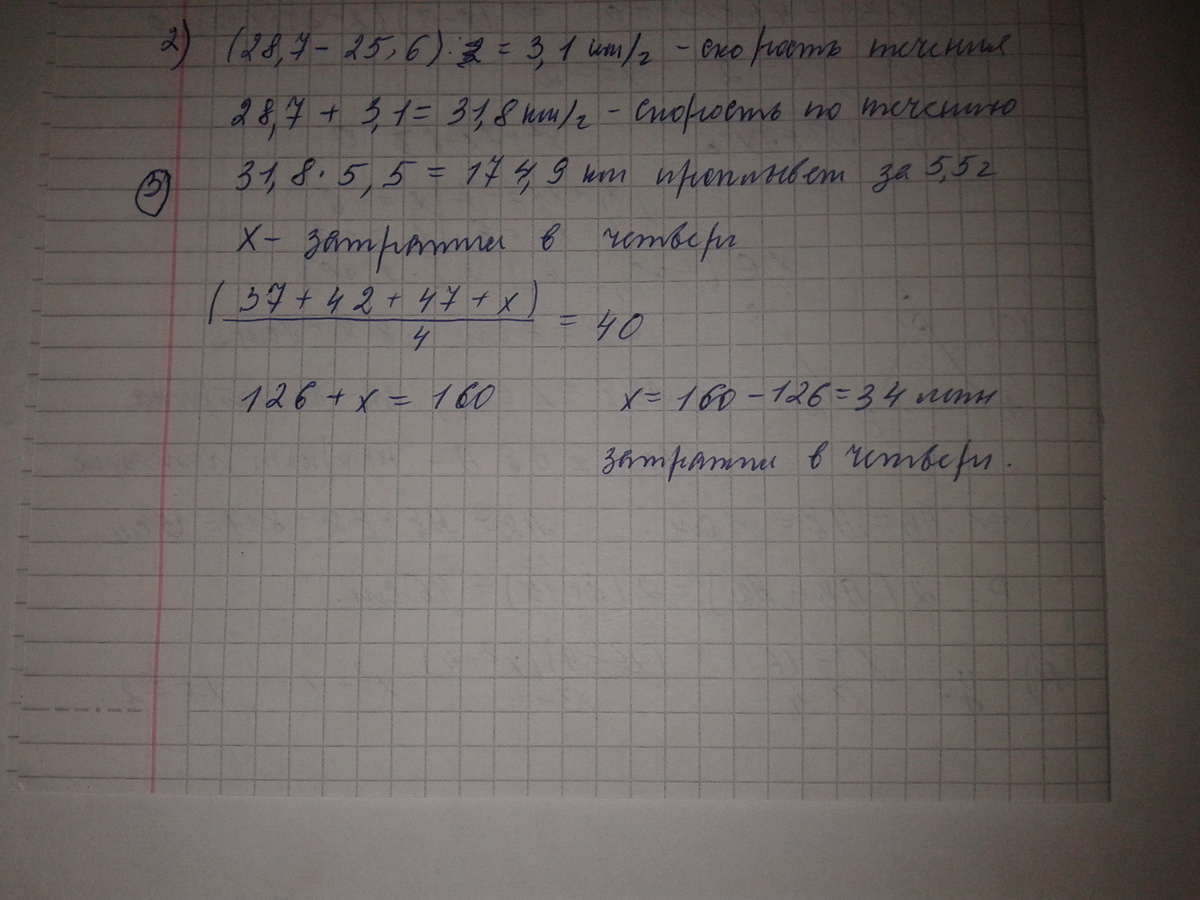 2) (28,7 - 25,6) = 3,1 км/г - скорость течения
28,7 + 3,1 = 31,8 км/г - скорость по течению
31,8 · 5,5 = 174,9 км проплывет за 5,5 г
5)
х - затратти в четверг
(37 + 42 + 47 + х)
4
= 40
126 + х = 160 х = 160 - 126 = 34 мтн
затратти в четверг.